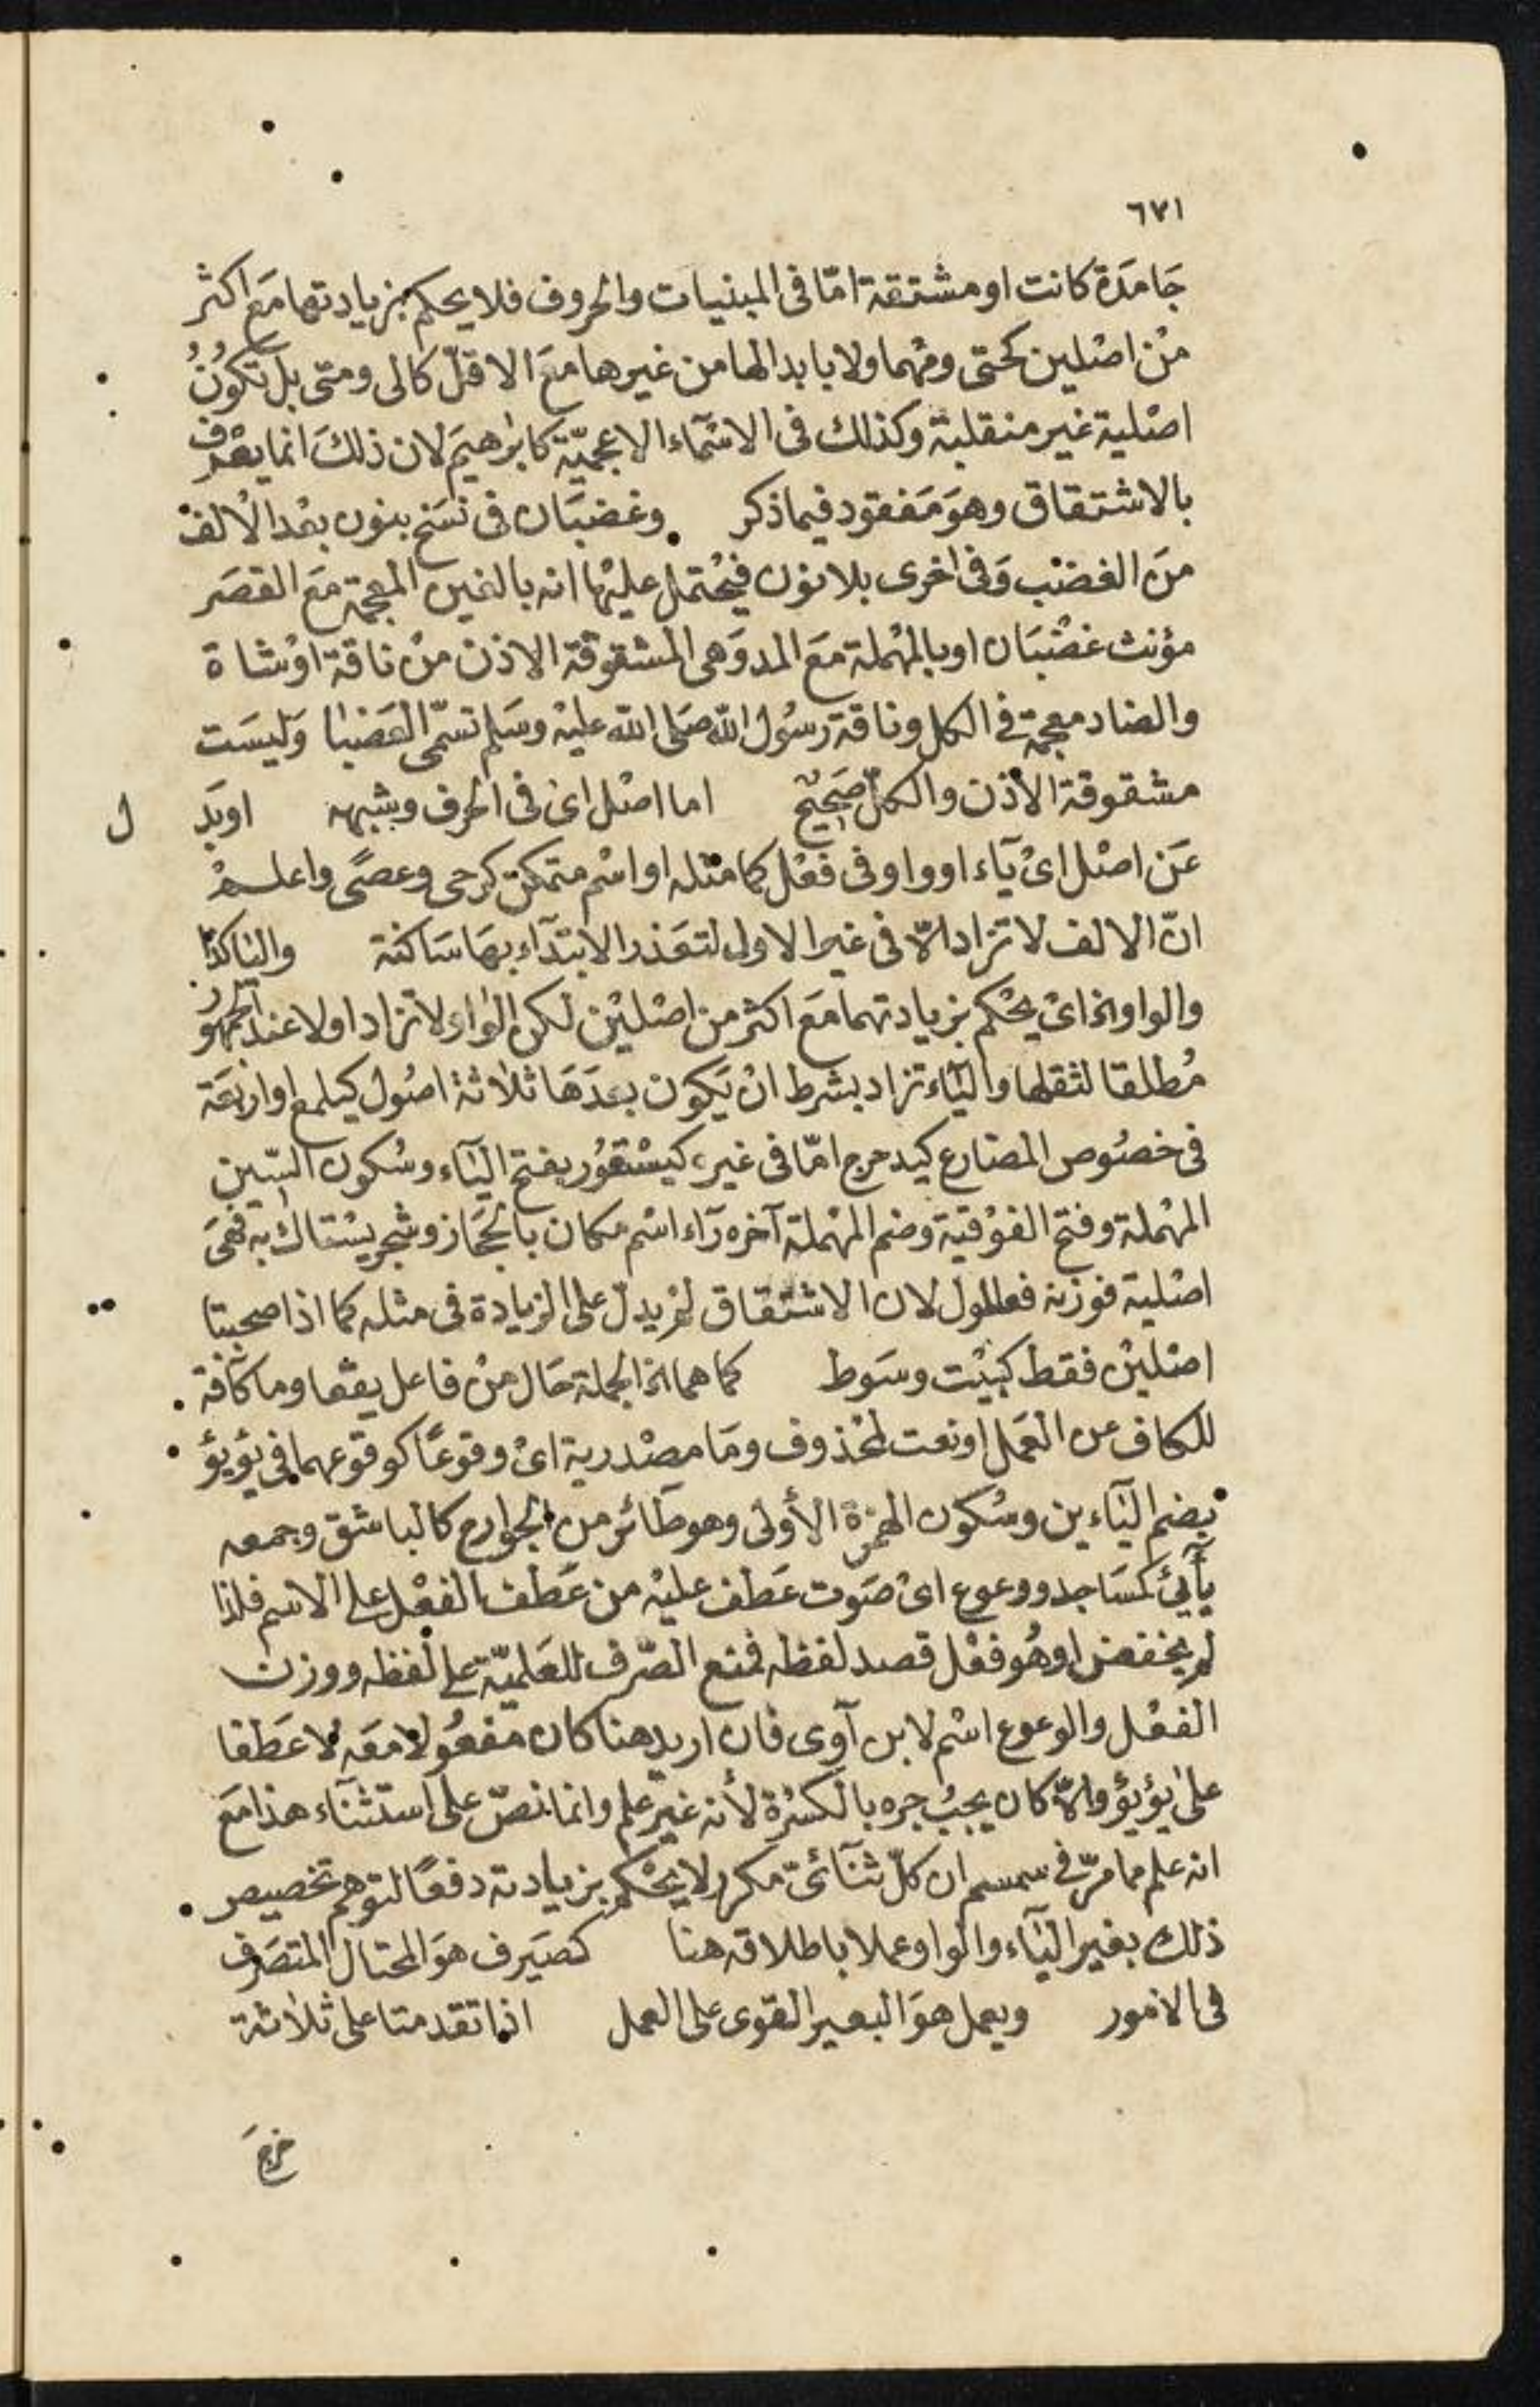 ٦٧١
جَامَدة كانت او مشتقة امّا فى المبنيات والحروف فلا يحكم بزيادتها مَع اكثر
مْن اصْلين كحتى ومهما ولا بابدالها من غيرها مَع الاقلّ كالى ومتى بل تكوُنُ
اصْلية غير منقلبة وكذلك فى الاسْمآء الاعجميّة كابرٰهيَم لان ذلكَ انما يعْرف
بالاشتقاق وهوَ مَفقود فيما ذكر وغضبَان فى نسَخ بنون بعْد الْالفْ
منَ الغضْب وَفى اخرى بلا نون فيحْتمل عليْها انه بالغين المعجمة مَع القصَر
مؤنث غضْبَان او بالمهْملة مَع المد وَهى المشقوقة الاذن منْ ناقة اوْ شاة
والضاد معجمة فى الكل وناقة رسُول الله صَلى الله عليْه وسَلم تسَمّى العَضبا وَليسَت
مشقوقة الاذن والكلّ صَحِيْح اما اصْل اىْ فى الحرف وشبهه او بَد ل
عَن اصْل اىْ يَآء او واو فى فعْل كما مثله او اسْم متمكن كرحى وعصًى واعلمْ
انّ الالف لا تزاد الّا فى غير الاول لتعَذر الابتدَآء بهَا سَاكنة واليا كذا
والواو الخ اىْ يحْكم بزيادتهما مَع اكثر من اصْليْن لكن الواو لا تزاد اولا عند الجمهور
مُطلقا لثقلها واليَآء تزاد بشرط انْ يَكون بعدَهَا ثلاثة اصُول كيلمع او اربَعَة
فى خصُوص المضارع كيدحرج امّا فى غيره كيسْتعُور بفتح اليَآء وسُكون السّين
المهْملة وفتح الفوْقية وضم المهْملة آخره رَآء اسْم مكان بالحجَاز وشجر يسْتاك به فهىَ
اصْلية فوزنه فعللول لان الاشتقاق لمْ يدلّ على الزيادة فى مثله كما اذا صحبتا
اصْليْن فقط كبيْت وسَوط كما هما الخ الجملة حَال منْ فاعل يقعا وما كافة
للكاف عن العَمل او نعت لمحْذوف ومَا مصْدرية اىْ وقوعًا كوقوعهما فى يؤيؤ
بضم اليَآءين وسُكون الهمزة الأولى وهو طائر من الجوارح كالباشق وجمعه
يآيئ كمسَاجد ووعوع اىْ صَوت عَطف عليْه من عَطف الفعْل على الاسم فلذا
لم يخفض او هُو فعْل قصد لفظه فمنع الصّرف للعَلميّة على لفظه ووزن
الفعْل والوعوع اسْم لابن آوى فان اريد هنا كان مفعُولا معَه لا عَطفا
على يؤيؤ والّا كان يجبُ جره بالكسْرة لأنه غيْر علم وانما نصّ على استثنآء هذا مَع
انه علم مما مرّ فى سمسم ان كلّ ثنَآئىّ مكرر لا يحْكم بزيادته دفعًا لتوهم تخصيص
ذلك بغير اليَآء والواو عملا باطلاقه هنا كصيَرف هوَ المحتال المتصَرف
فى الامور ويعمل هوَ البعير القوى على العمل اذا تقدمتا على ثلاثة
خرج